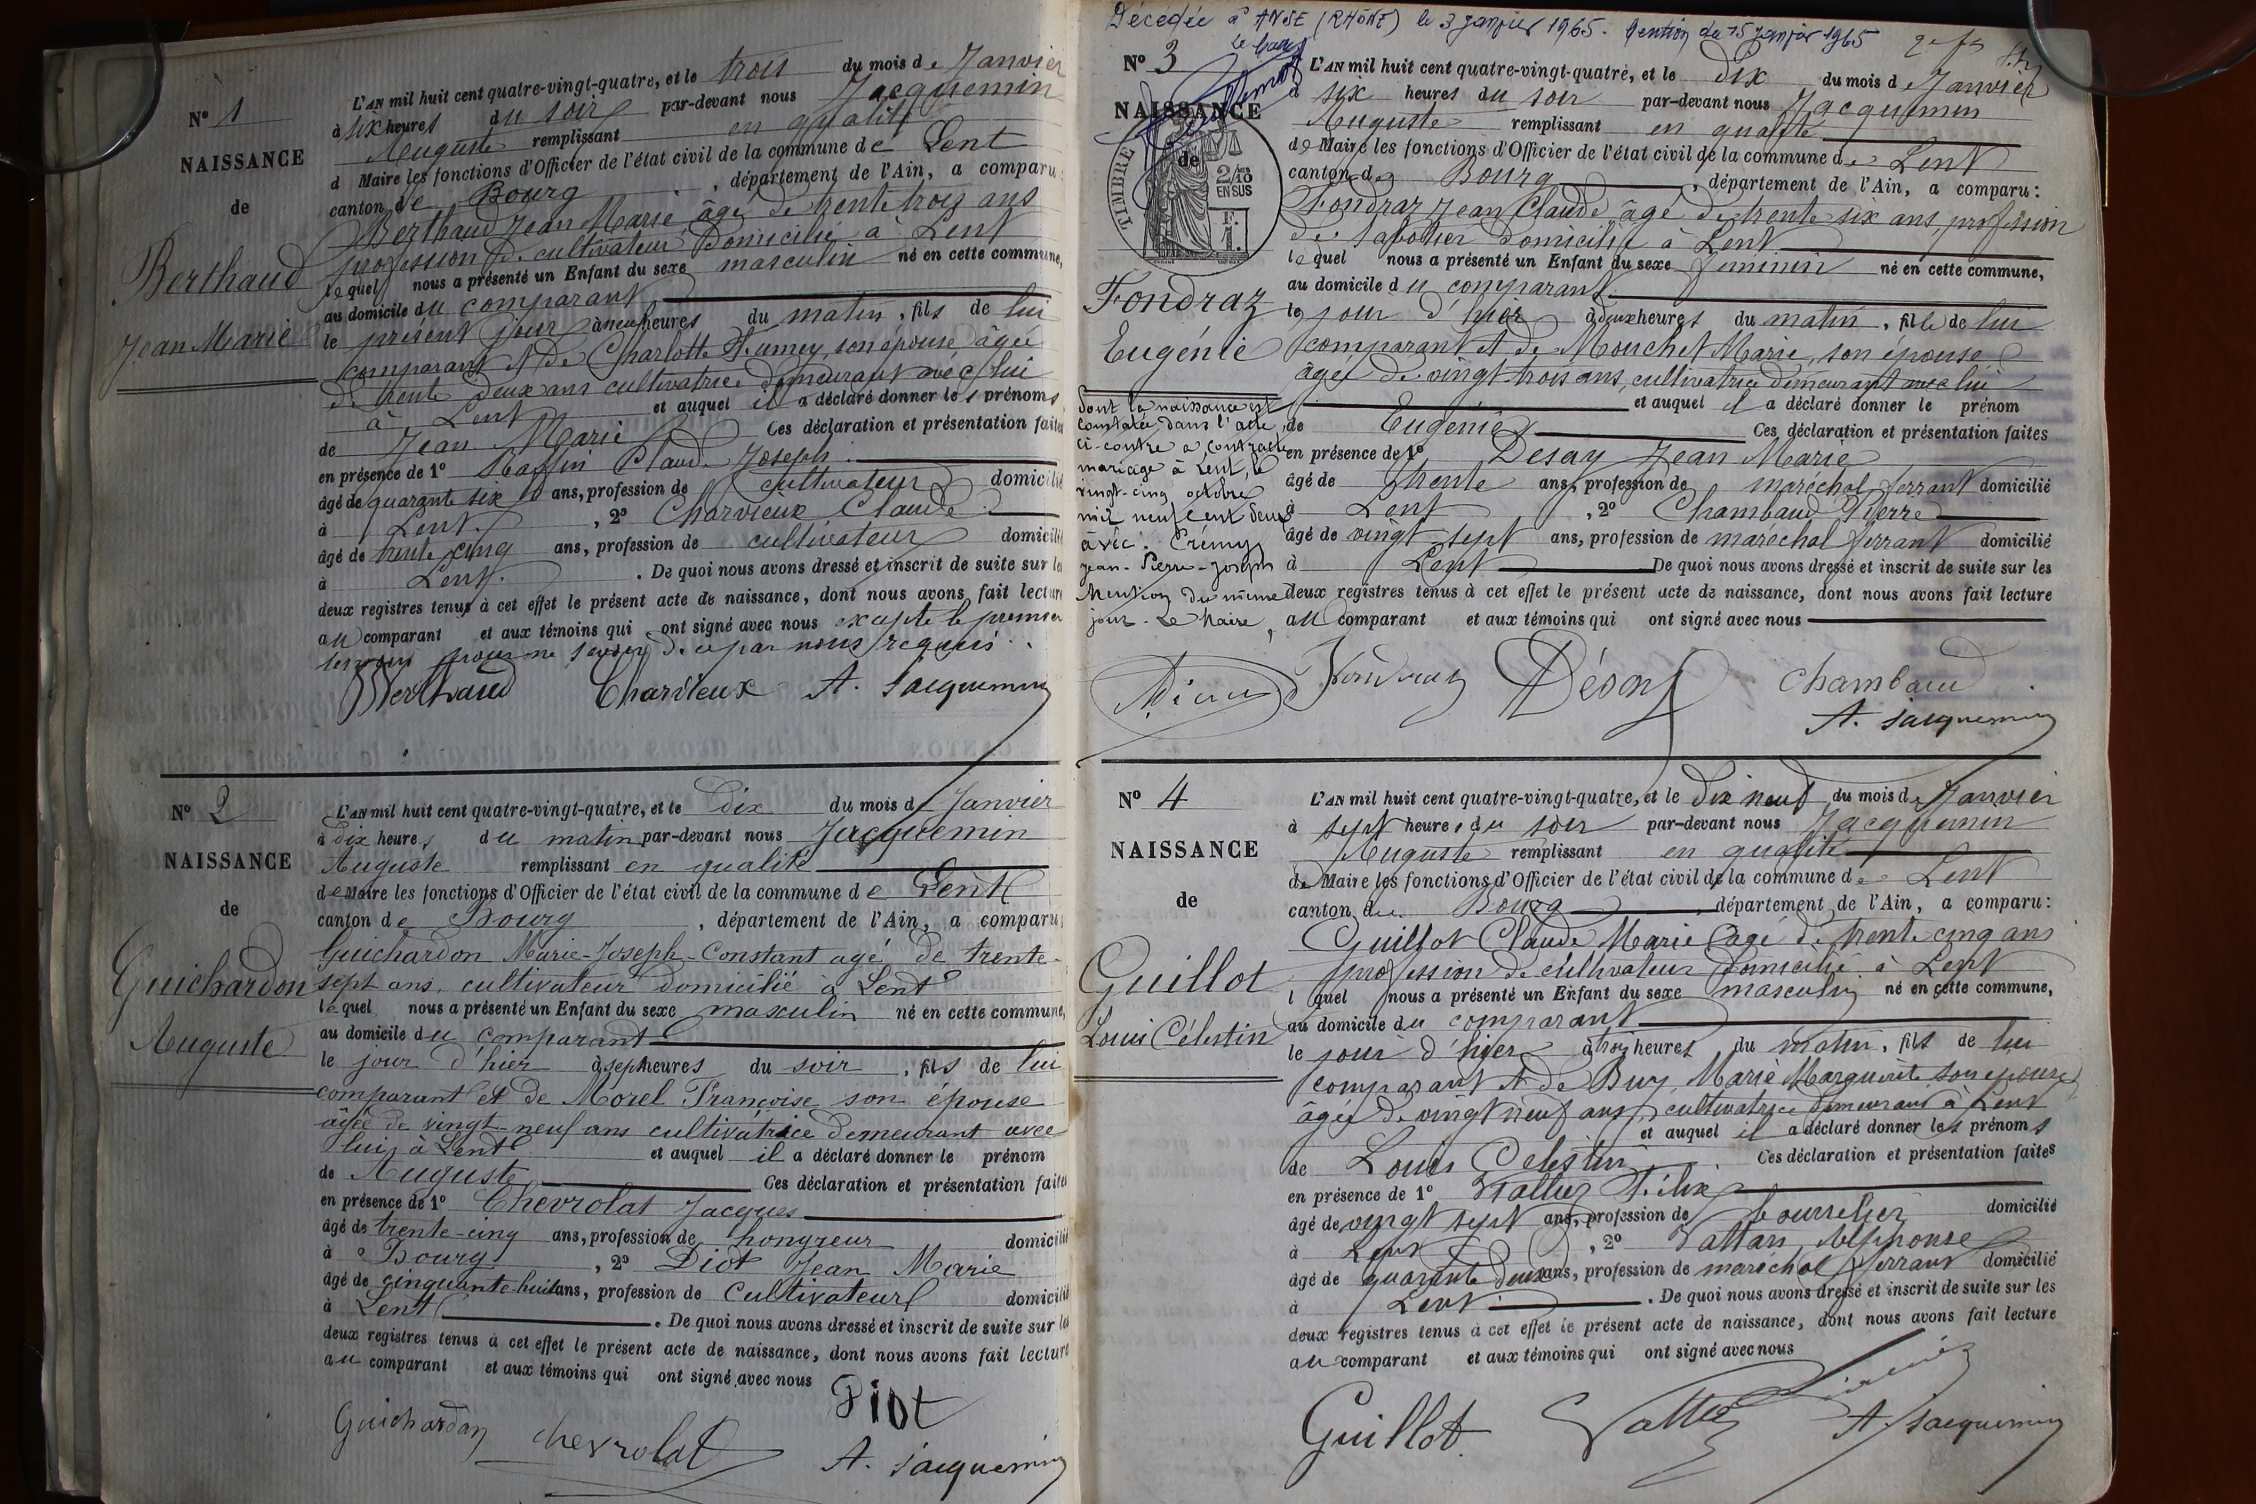 N° 1
NAISSANCE
de
Berthaud
Jean Marie
L'AN mil huit cent quatre-vingt-quatre, et le trois du mois de Janvier
à six heures du soir par-devant nous Jacquemin
Auguste remplissant en qualité
d Maire les fonctions d'Officier de l'état civil de la commune de Lent
canton de Bourg, département de l'Ain, a comparu
Berthaud Jean Marie âgé de trente trois ans
profession de cultivateur domicilié à Lent
lequel nous a présenté un Enfant du sexe masculin né en cette commune,
au domicile du comparant
le présent jour à neuf heures du matin, fils de lui
comparant et de Charlotte son épouse âgée
de trente deux ans cultivatrice demeurant avec lui
à Lent et auquel il a déclaré donner les prénoms
de Jean Marie Ces déclaration et présentation faites
en présence de 1° Claude Joseph
âgé de quarante six ans, profession de cultivateur domicilié
à Lent, 2° Charvieux Claude
âgé de trente cinq ans, profession de cultivateur domicilié
à Lent. De quoi nous avons dressé et inscrit de suite sur les
deux registres tenus à cet effet le présent acte de naissance, dont nous avons fait lecture
au comparant et aux témoins qui ont signé avec nous excepté le premier
témoin pour ne savoir de ce par nous requis.
Berthaud Charvieux A. Jacquemin
N° 2
NAISSANCE
de
Guichardon
Auguste
L'AN mil huit cent quatre-vingt-quatre, et le dix du mois de Janvier
à dix heures du matin par-devant nous Jacquemin
Auguste remplissant en qualité
de Maire les fonctions d'Officier de l'état civil de la commune de Lent
canton de Bourg, département de l'Ain, a comparu
Guichardon Marie-Joseph-Constant agé de trente-
sept ans, cultivateur domicilié à Lent
lequel nous a présenté un Enfant du sexe masculin né en cette commune,
au domicile du comparant
le jour d'hier à sept heures du soir, fils de lui
comparant et de Morel Françoise son épouse
âgée de vingt-neuf ans cultivatrice demeurant avec
lui à Lent et auquel il a déclaré donner le prénom
de Auguste Ces déclaration et présentation faites
en présence de 1° Chevrolat Jacques
âgé de trente-cinq ans, profession de hongreur domicilié
à Bourg, 2° Piot Jean Marie
âgé de cinquante-huit ans, profession de Cultivateur domicilié
à Lent. De quoi nous avons dressé et inscrit de suite sur les
deux registres tenus à cet effet le présent acte de naissance, dont nous avons fait lecture
au comparant et aux témoins qui ont signé avec nous
Piot
Guichardon Chevrolat A. Jacquemin
Décédée à ANSE (RHÔNE) le 3 Janvier 1965. Mention du 15 Janvier 1965
N° 3
NAISSANCE
de
TIMBRE
2/10
EN SUS
F.
1.
Fondraz
Eugénie
dont la naissance est
constatée dans l'acte
ci-contre a contracté
mariage à Lent, le
vingt-cinq octobre
mil neuf cent deux
avec Crémy
Jean-Pierre-Joseph
Mention du même
jour. Le Maire,
L'AN mil huit cent quatre-vingt-quatre, et le dix du mois de Janvier
à six heures du soir par-devant nous Jacquemin
Auguste remplissant en qualité
de Maire les fonctions d'Officier de l'état civil de la commune de Lent
canton de Bourg, département de l'Ain, a comparu:
Fondraz Jean Claude âgé de trente six ans, profession
de sabotier domicilié à Lent
lequel nous a présenté un Enfant du sexe féminin né en cette commune,
au domicile du comparant
le jour d'hier à deux heures du matin, fille de lui
comparant et de Mouchet Marie, son épouse
âgée de vingt-trois ans, cultivatrice demeurant avec lui
et auquel il a déclaré donner le prénom
de Eugénie Ces déclaration et présentation faites
en présence de 1° Desay Jean Marie
âgé de trente ans, profession de maréchal ferrant domicilié
à Lent, 2° Chambaud Pierre
âgé de vingt sept ans, profession de maréchal ferrant domicilié
à Lent De quoi nous avons dressé et inscrit de suite sur les
deux registres tenus à cet effet le présent acte de naissance, dont nous avons fait lecture
au comparant et aux témoins qui ont signé avec nous
Fondraz Chambaud
A. Jacquemin
N° 4
NAISSANCE
de
Guillot
Louis Célestin
L'AN mil huit cent quatre-vingt-quatre, et le dix neuf du mois de Janvier
à sept heures du soir par-devant nous Jacquemin
Auguste remplissant en qualité
de Maire les fonctions d'Officier de l'état civil de la commune de Lent
canton de Bourg, département de l'Ain, a comparu:
Guillot Claude Marie âgé de trente cinq ans
profession de cultivateur domicilié à Lent
l quel nous a présenté un Enfant du sexe masculin né en cette commune,
au domicile du comparant
le jour d'hier à trois heures du matin, fils de lui
comparant et de Buy Marie Marguerite son épouse
âgée de vingt neuf ans, cultivatrice demeurant à Lent
et auquel il a déclaré donner les prénoms
de Louis Célestin Ces déclaration et présentation faites
en présence de 1° Vallier Félix
âgé de vingt sept ans, profession de bourrelier domicilié
à Lent, 2° Alphonse
âgé de quarante deux ans, profession de maréchal ferrant domicilié
à Lent. De quoi nous avons dressé et inscrit de suite sur les
deux registres tenus à cet effet le présent acte de naissance, dont nous avons fait lecture
au comparant et aux témoins qui ont signé avec nous
Guillot A. Jacquemin